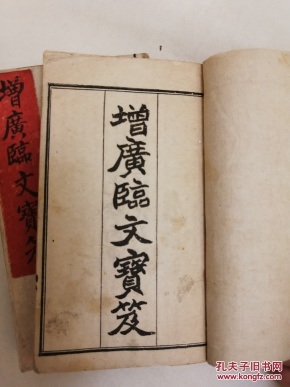 增廣臨文寶笈
增廣臨文寶笈
孔夫子旧书网
www.kongfz.com